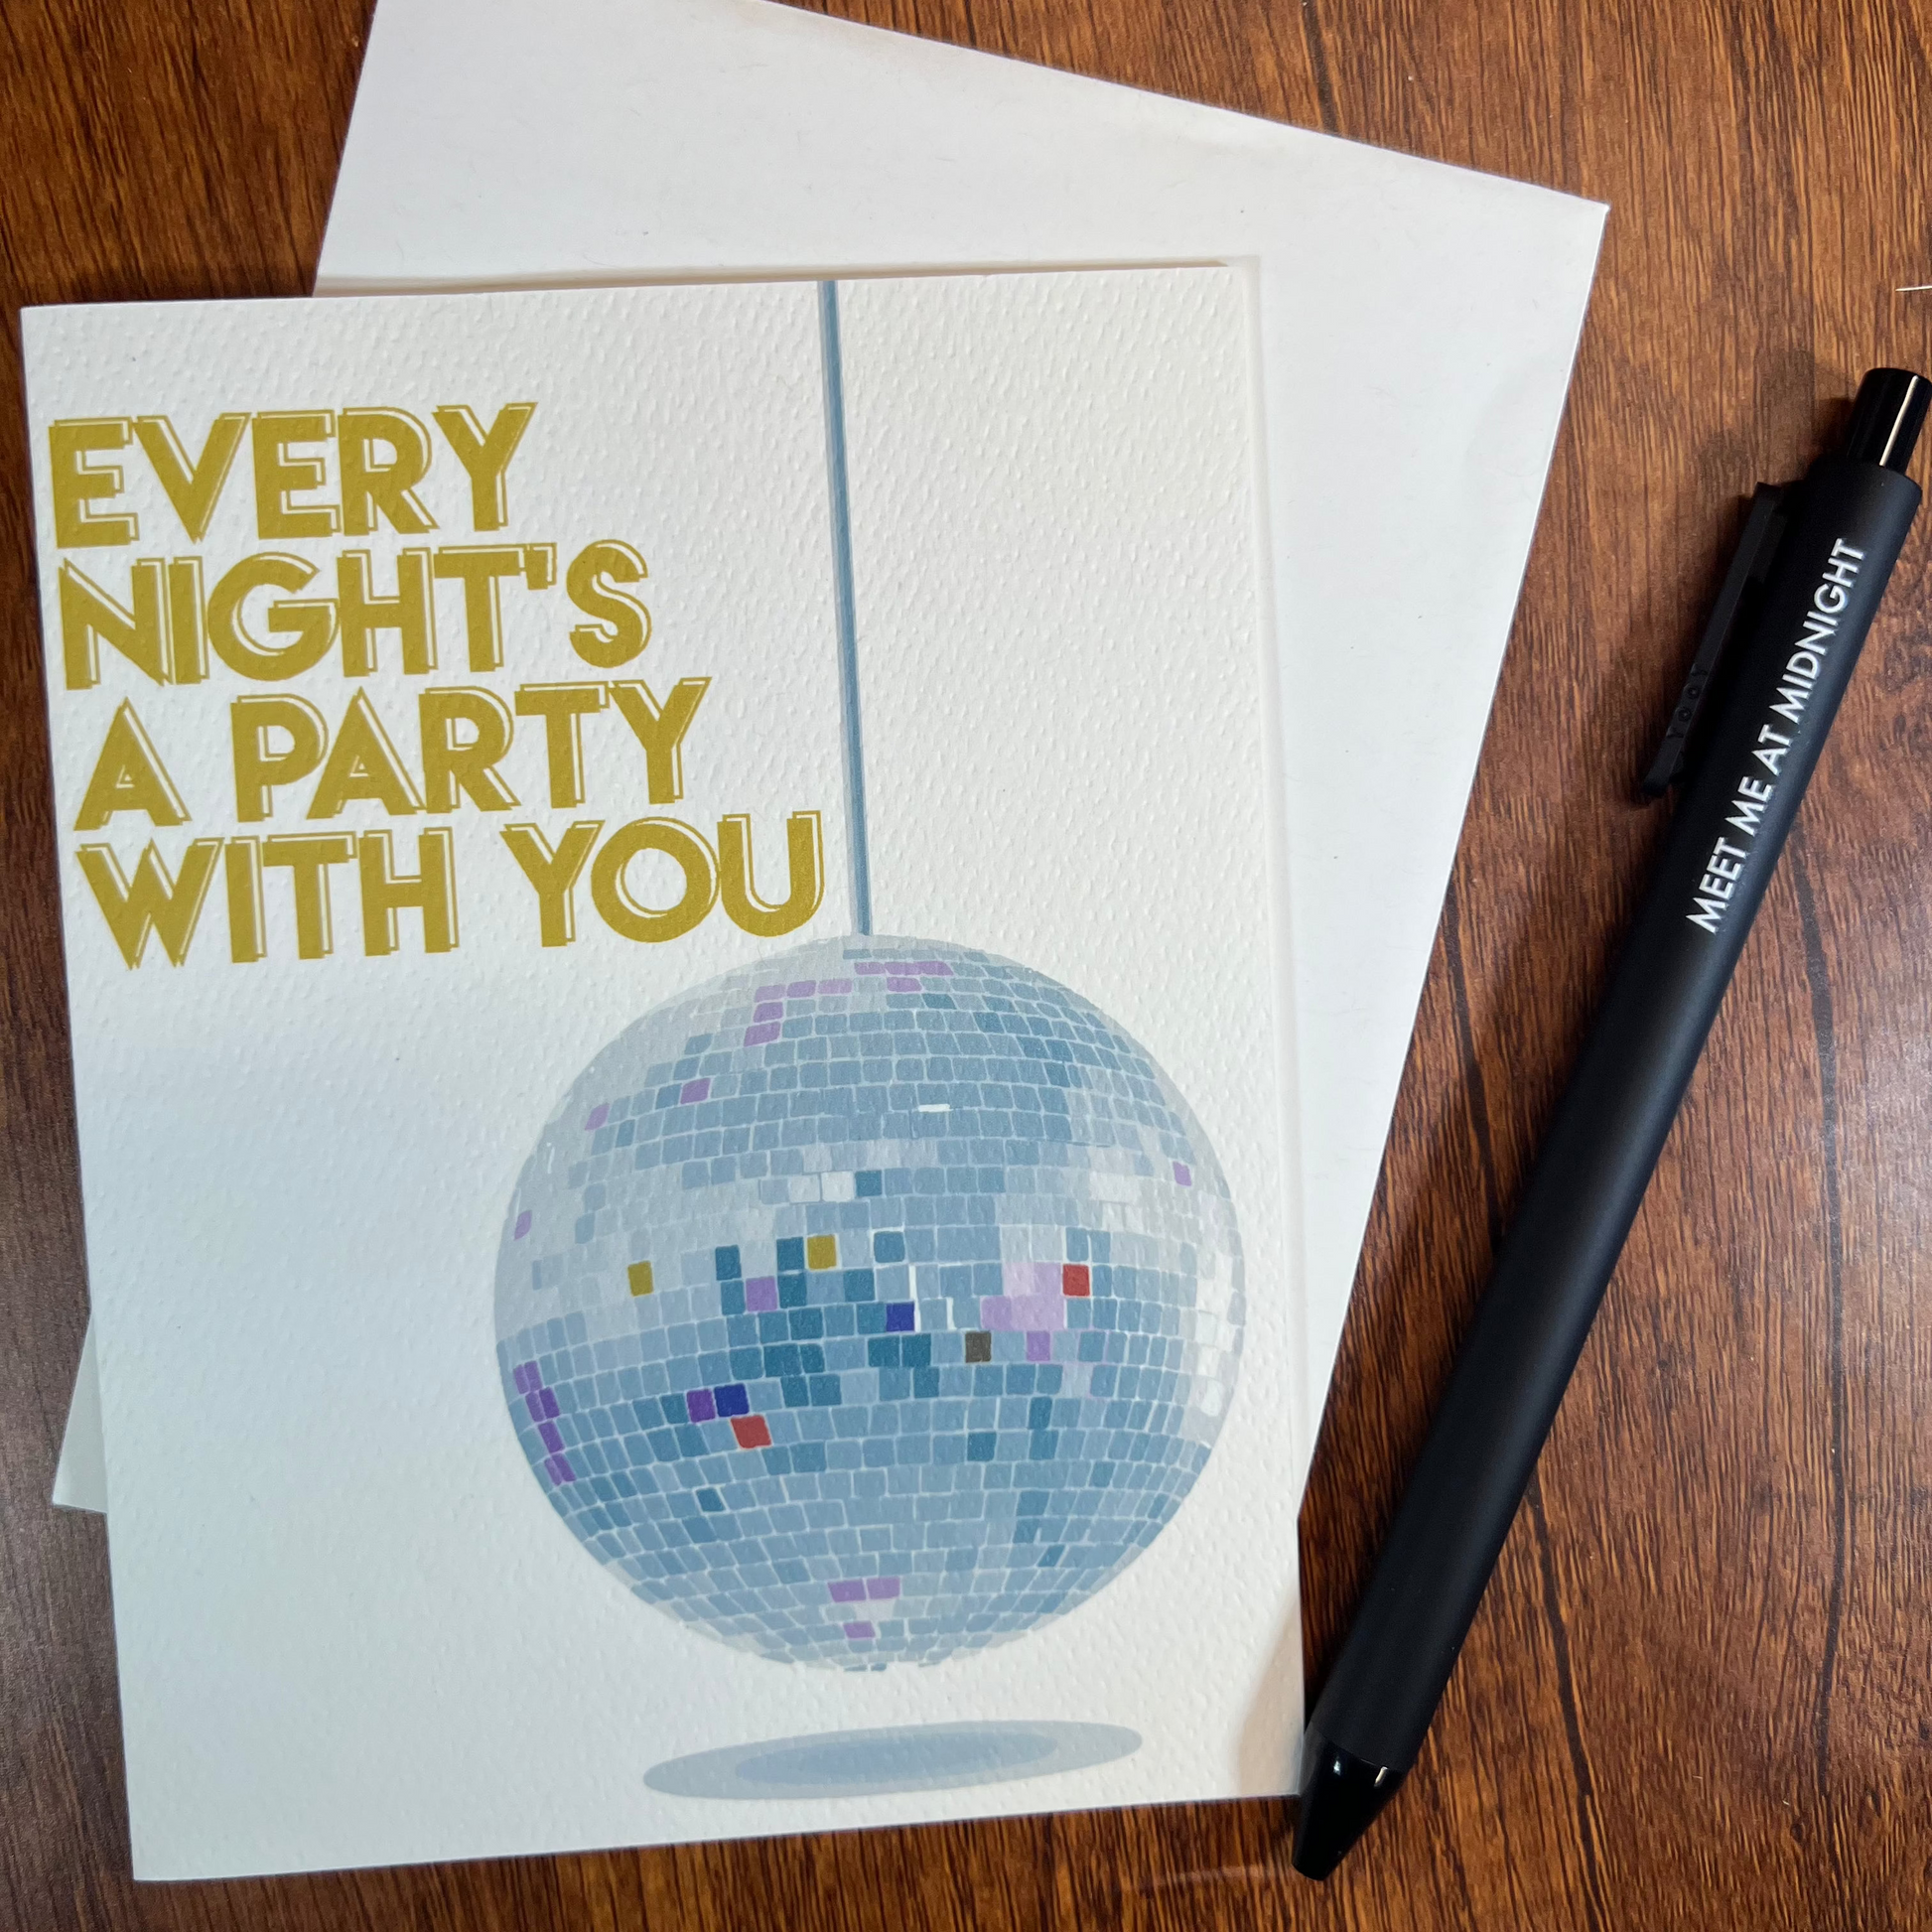 EVERY
NIGHT'S
A PARTY
WITH YOU
MEET ME AT MIDNIGHT